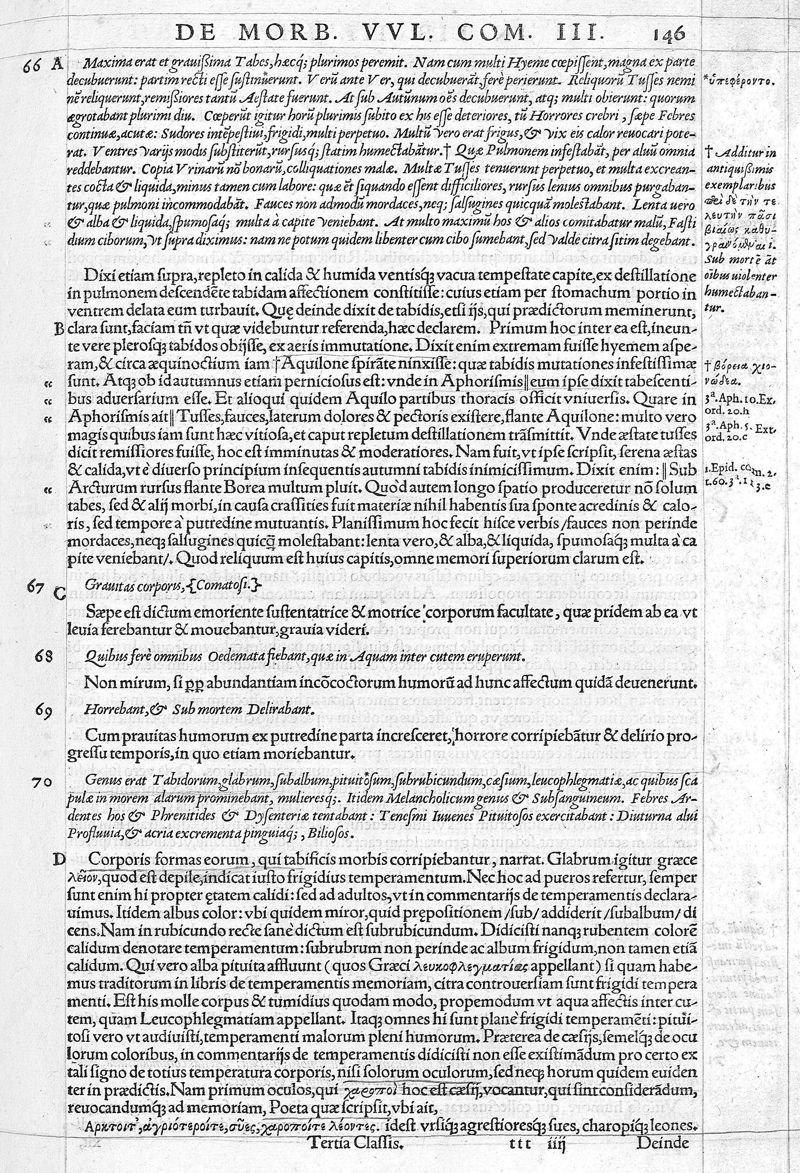 DE MORB. VVL. COM. III. 146
66 A Maxima erat et grauißima Tabes, hæcq; plurimos peremit. Nam cum multi Hyeme cœpissent, magna ex parte
decubuerunt: partim recti esse sustinuerunt. Verũ ante Ver, qui decubuerãt, ferè perierunt. Reliquorũ Tusses nemi
nẽ reliquerunt, remißiores tantũ Aestate fuerunt. At sub Autũnum oẽs decubuerunt, atq; multi obierunt: quorum
ægrotabant plurimi diu. Cœperũt igitur horũ plurimus subito ex his esse deteriores, tũ Horrores crebri, sæpe Febres
continuæ, acutæ: Sudores intẽpestiui, frigidi, multi perpetuo. Multũ vero erat frigus, & vix eis calor reuocari pote-
rat. Ventres varijs modis substiterũt, rursusq; statim humectabãtur.† Quæ Pulmonem infestabãt, per aluũ omnia
reddebantur. Copia Vrinarũ nõ bonarũ, colliquationes malæ. Multæ Tusses tenuerunt perpetuo, et multa excrean-
tes cocta & liquida, minus tamen cum labore: quæ ẽt siquando essent difficiliores, rursus lenius omnibus purgaban-
tur, quæ pulmoni incommodabãt. Fauces non admodũ mordaces, neq; salsugines quicquã molestabant. Lenta uero
& alba & liquida, spumosaq; multa à capite veniebant. At multo maximũ hos & alios comitabatur malũ, Fasti
dium ciborum, vt supra diximus: nam ne potum quidem libenter cum cibo sumebant, sed valde citra sitim degebant.
*ὑπεφέροντο.
† Additur in
antiquißimis
exemplaribus
Sub mortẽ ãt
oĩbus uiolenter
humectaban-
tur.
Dixi etiam supra, repleto in calida & humida ventisq́; vacua tempestate capite, ex destillatione
in pulmonem descendẽte tabidam affectionem constitisse: cuius etiam per stomachum portio in
ventrem delata eum turbauit. Quę deinde dixit de tabidis, etsi ijs, qui prædictorum meminerunt,
B clara sunt, faciam tñ vt quæ videbuntur referenda, hæc declarem. Primum hoc inter ea est, ineun-
te vere plerosq́; tabidos obijsse, ex aeris immutatione. Dixit enim extremam fuisse hyemem aspe-
ram, & circa æquinoctium iam †Aquilone spirãte ninxisse: quæ tabidis mutationes infestissimæ
“ sunt. Atq́; ob id autumnus etiam perniciosus est: vnde in Aphorismis‖eum ipse dixit tabescenti-
“ bus aduersarium esse. Et alioqui quidem Aquilo partibus thoracis officit vniuersis. Quare in
“ Aphorismis ait‖Tusses, fauces, laterum dolores & pectoris existere, flante Aquilone: multo vero
magis quibus iam sunt hæc vitiosa, et caput repletum destillationem trãsmittit. Vnde æstate tusses
dicit remissiores fuisse, hoc est imminutas & moderatiores. Nam fuit, vt ipse scripsit, serena æstas
& calida, vt è diuerso principium insequentis autumni tabidis inimicissimum. Dixit enim:‖Sub
“ Arcturum rursus flante Borea multum pluit. Quòd autem longo spatio produceretur nõ solum
tabes, sed & alij morbi, in causa crassities fuit materiæ nihil habentis sua sponte acredinis & calo-
ris, sed tempore à putredine mutuantis. Planissimum hoc fecit hisce verbis /fauces non perinde
mordaces, neq́; salsugines quicq̃ molestabant: lenta vero, & alba, & liquida, spumosaq́; multa à ca
pite veniebant/. Quod reliquum est huius capitis, omne memori superiorum clarum est.
† βόρεια χιο-
νώδεα.
3ª.Aph.10.Ex.
ord.20.h
3ª.Aph.5.Ext.
ord.20.c
1.Epid.com.2.
67 C Grauitas corporis, {Comatosi.}
Sæpe est dictum emoriente sustentatrice & motrice corporum facultate, quæ pridem ab ea vt
leuia ferebantur & mouebantur, grauia videri.
68 Quibus ferè omnibus Oedemata fiebant, quæ in Aquam inter cutem eruperunt.
Non mirum, si ꝓꝓ abundantiam incõcoctorum humorũ ad hunc affectum quidã deuenerunt.
69 Horrebant, & Sub mortem Delirabant.
Cum prauitas humorum ex putredine parta incresceret, horrore corripiebãtur & delirio pro-
gressu temporis, in quo etiam moriebantur.
70 Genus erat Tabidorum, glabrum, subalbum, pituitosum, subrubicundum, cæsium, leucophlegmatiæ, ac quibus sca
pulæ in morem alarum prominebant, mulieresq;. Itidem Melancholicum genus & Subsanguineum. Febres Ar-
dentes hos & Phrenitides & Dysenteriæ tentabant: Tenesmi Iuuenes Pituitosos exercitabant: Diuturna alui
Profluuia, & acria excrementa pinguiaq;, Biliosos.
D Corporis formas eorum, qui tabificis morbis corripiebantur, narrat. Glabrum igitur græce
λεῖον, quod est depile, indicat iusto frigidius temperamentum. Nec hoc ad pueros refertur, semper
sunt enim hi propter ętatem calidi: sed ad adultos, vt in commentarijs de temperamentis declara-
uimus. Itidem albus color: vbi quidem miror, quid prępositionem /sub/ addiderit /subalbum/ di
cens. Nam in rubicundo recte sanè dictum est subrubicundum. Didicisti nanq́; rubentem colorẽ
calidum denotare temperamentum: subrubrum non perinde ac album frigidum, non tamen etiã
calidum. Qui vero alba pituita affluunt (quos Græci λευκοφλεγματίας appellant) si quam habe-
mus traditorum in libris de temperamentis memoriam, citra controuersiam sunt frigidi tempera
menti. Est his molle corpus & tumidius quodam modo, propemodum vt aqua affectis inter cu-
tem, quam Leucophlegmatiam appellant. Itaq́; omnes hi sunt planè frigidi temperamẽti: pitui-
tosi vero vt audiuisti, temperamenti malorum pleni humorum. Præterea de cæsijs, semelq́; de ocu
lorum coloribus, in commentarijs de temperamentis didicisti non esse existimãdum pro certo ex
tali signo de totius temperatura corporis, nisi solorum oculorum, sed neq́; horum quidem euiden
ter in prædictis. Nam primum oculos, qui χαροποὶ hoc est cæsij, vocantur, qui sint considerãdum,
reuocandumq́; ad memoriam, Poeta quæ scripsit, vbi ait,
Αρκτοιτ', ἀγριότεροιτε, σύες, χαροποίτε λέοντες. idest vrsiq́; agrestioresq́; sues, charopiq́; leones.
Tertia Classis. ttt iiij Deinde